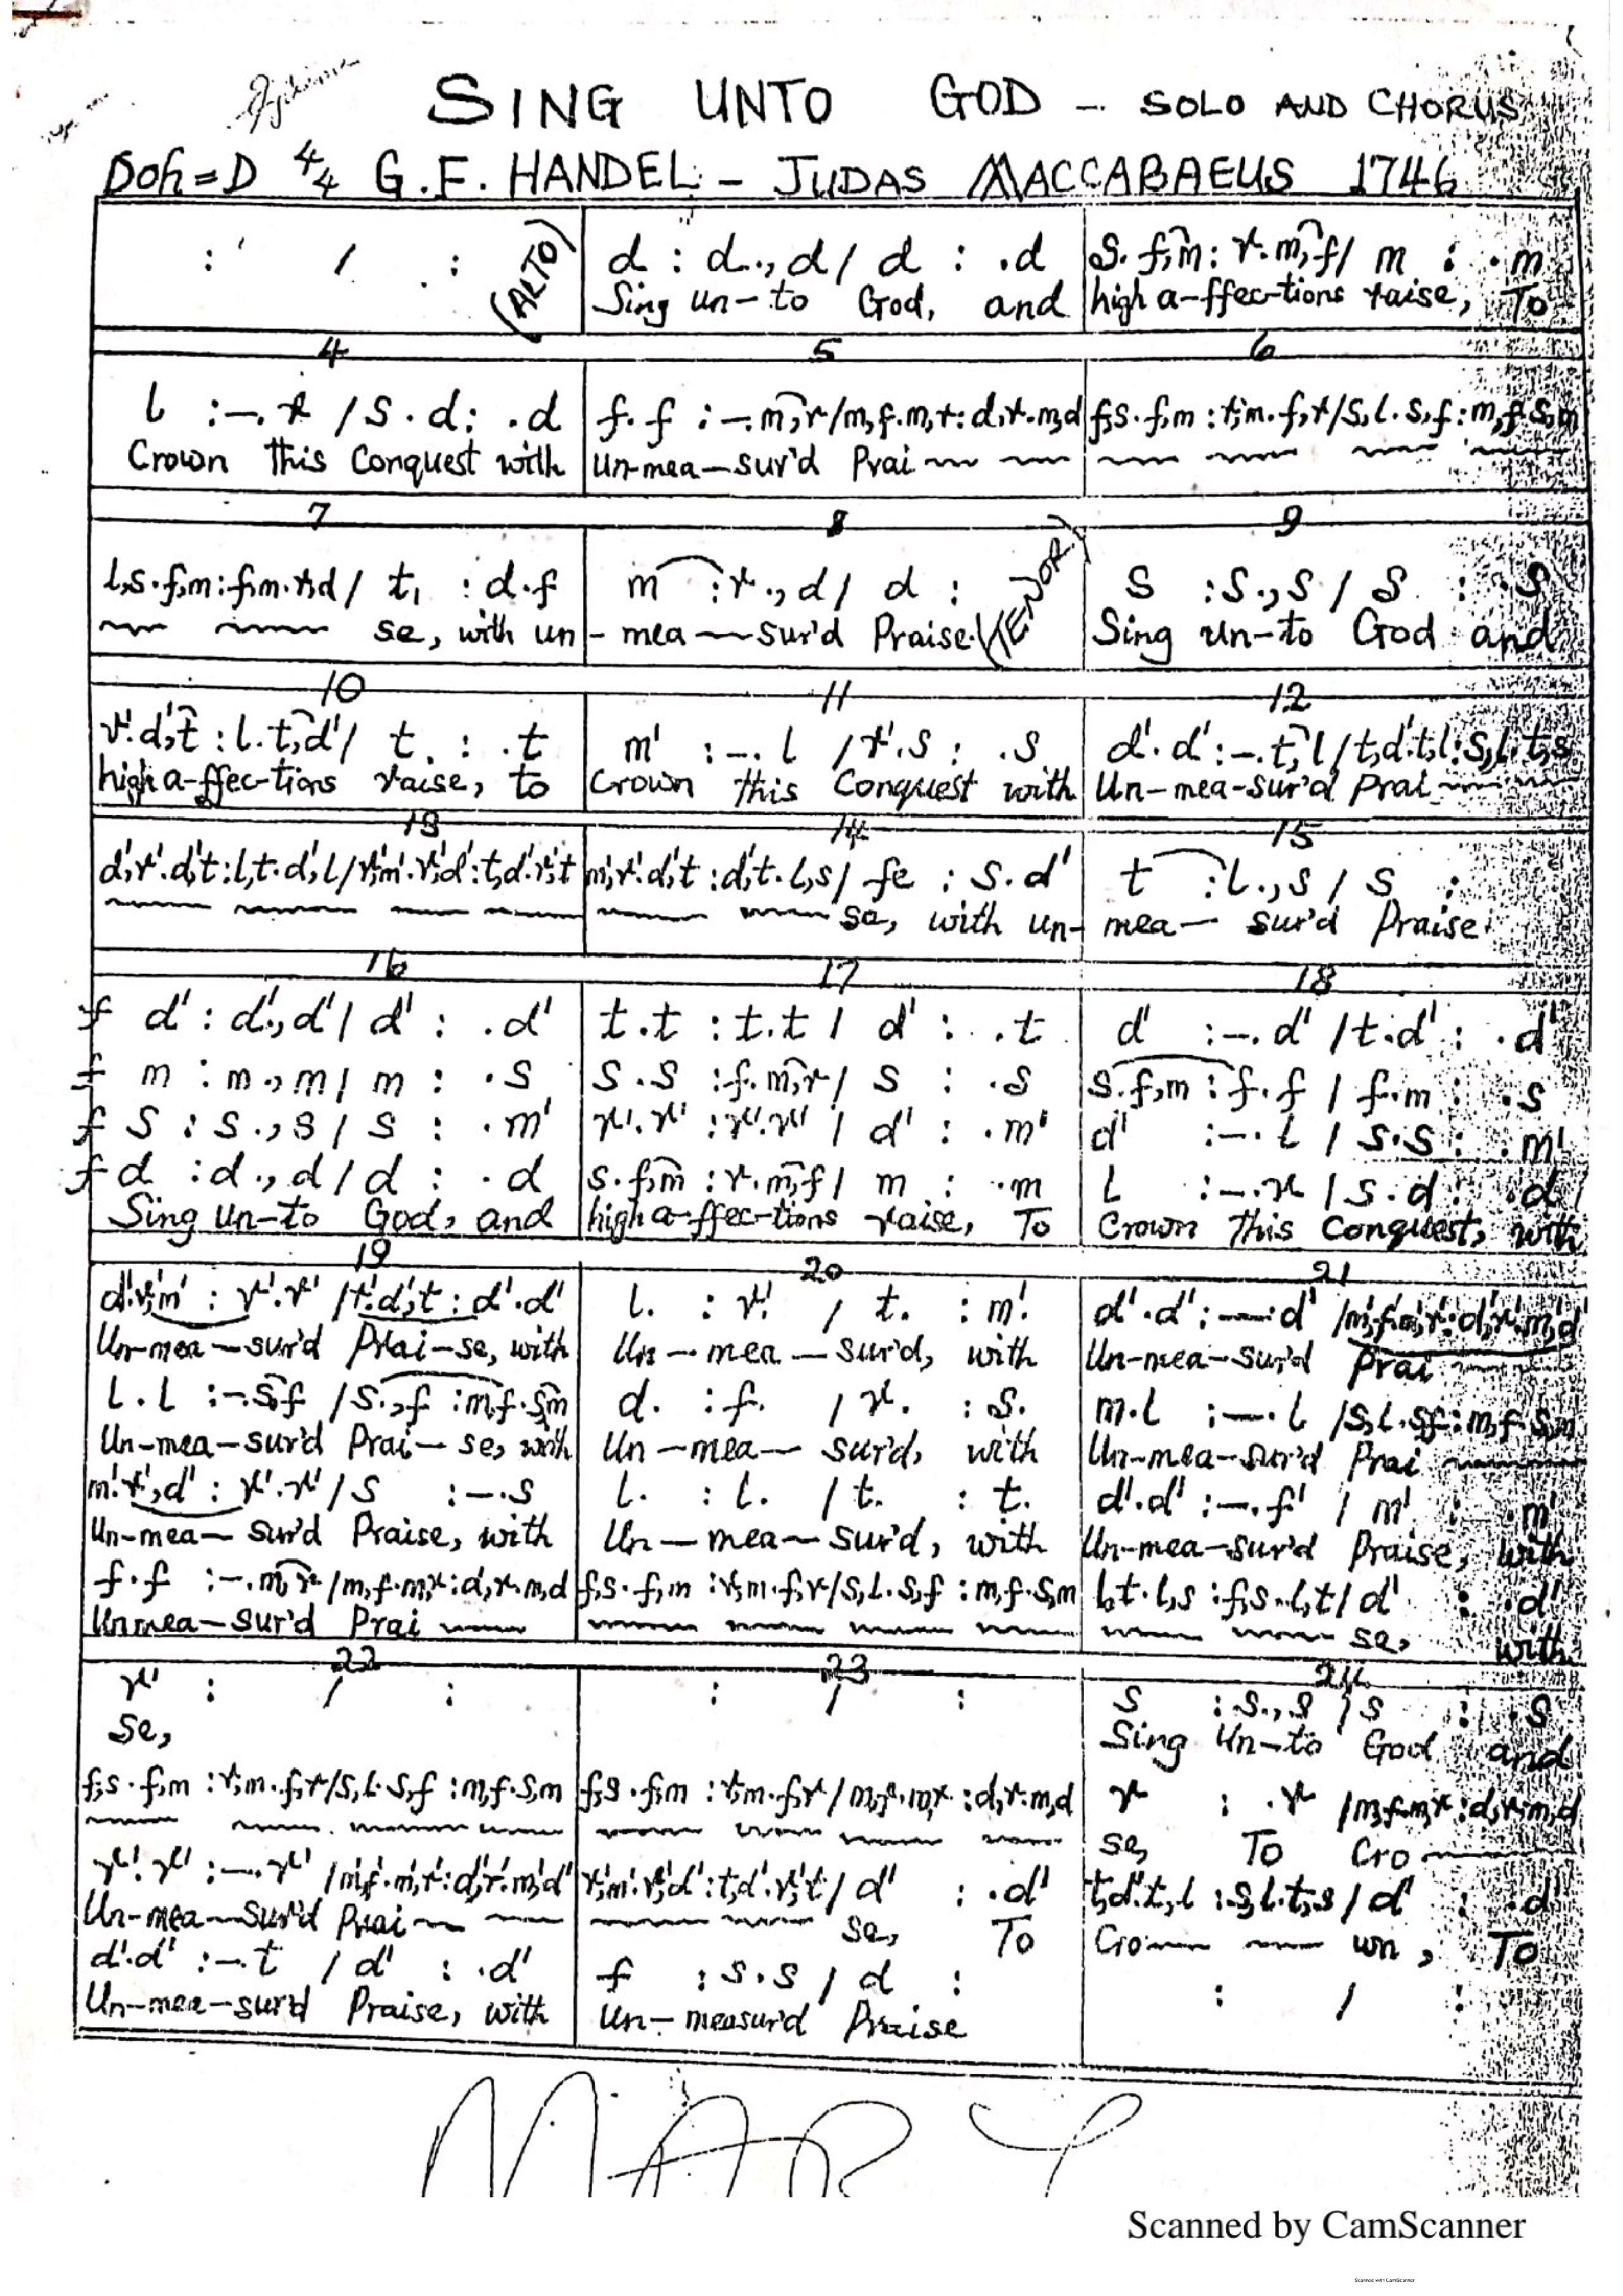 SING UNTO GOD – SOLO AND CHORUS
Doh=D 4/4 G.F. HANDEL – JUDAS MACCABAEUS 1746
: / : (ALTO) d : d.,d / d : .d S.f,m : r.m,f / m : .m
Sing un-to God, and high a-ffec-tions raise, To
4 5 6
l :-.r / s.d : .d f.f :-.m,r/m,f.m,r:d,r.m,d f,s.f,m:r,m.f,r/s,l.s,f:m,f.s,m
Crown this Conquest with un-mea-sur'd Prai
7 8 9
l,s.f,m:f,m.r,d/ t, : d.f m :r.,d/ d : (TENOR) S :S.,S / S : .S
se, with un- mea-sur'd Praise. Sing un-to God and
10 11 12
r'.d',t : l.t,d'/ t. : .t m' :-.l /r'.s : .s d'.d':-.t,l/t,d'.t,l:s,l.t,s
high a-ffec-tions raise, to Crown this Conquest with Un-mea-sur'd Prai
13 14 15
d',r'.d',t:l,t.d',l/r',m'.r',d':t,d'.r',t m',r'.d',t:d',t.l,s/ fe : s.d' t :l.,s / s :
se, with un- mea- sur'd Praise.
16 17 18
f d' : d'.,d' / d' : .d' t.t : t.t / d' : .t d' :-.d' /t.d' : .d'
f m : m.,m / m : .s s.s :f.m,r/ s : .s s.f,m : f.f / f.m : .s
f s : s.,s / s : .m' r'.r' :r'.r' / d' : .m' d' :-.l / s.s : .m'
f d :d.,d / d : .d s.f,m :r.m,f/ m : .m l :-.r / s.d : .d
Sing un-to God, and high a-ffec-tions raise, To Crown this Conquest, with
19 20 21
d'.r',m' : r'.r' /r'.d',t : d'.d' l. : r'. / t. : m'. d'.d' :-.d' /m',f'.m',r':d',r'.m',d'
Un-mea-sur'd Prai-se, with Un-mea-sur'd, with Un-mea-sur'd Prai
l.l :-.s,f /s.,f :m,f.s,m d. : f. / r. : s. m.l :-.l /s,l.s,f:m,f.s,m
Un-mea-sur'd Prai-se, with Un-mea-sur'd, with Un-mea-sur'd Prai
m'.r',d' : r'.r' / s :-.s l. : l. / t. : t. d'.d' :-.f' / m' : .m'
Un-mea-sur'd Praise, with Un-mea-sur'd, with Un-mea-sur'd Praise, with
f.f :-.m,r/m,f.m,r:d,r.m,d f,s.f,m :r,m.f,r/s,l.s,f :m,f.s,m l,t.l,s :f,s.l,t/ d' : .d'
Unmea-sur'd Prai se, with
22 23 24
r' : / : : / : s :s.,s / s : .s
se, Sing Un-to God and
f,s.f,m :r,m.f,r/s,l.s,f :m,f.s,m f,s.f,m :r,m.f,r/m,f.m,r :d,r.m,d r : .r /m,f.m,r:d,r.m,d
se, To Cro
r'.r' :-.r' /m',f'.m',r':d',r'.m',d' r',m'.r',d':t,d'.r',t/ d' : .d' t,d'.t,l :s,l.t,s/ d' : .d'
Un-mea-sur'd Prai se, To Cro wn, To
d'.d' :-.t / d' : .d' f : s.s / d : : / :
Un-mea-sur'd Praise, with Un-measur'd Praise
MARY
Scanned by CamScanner
Scanned with CamScanner